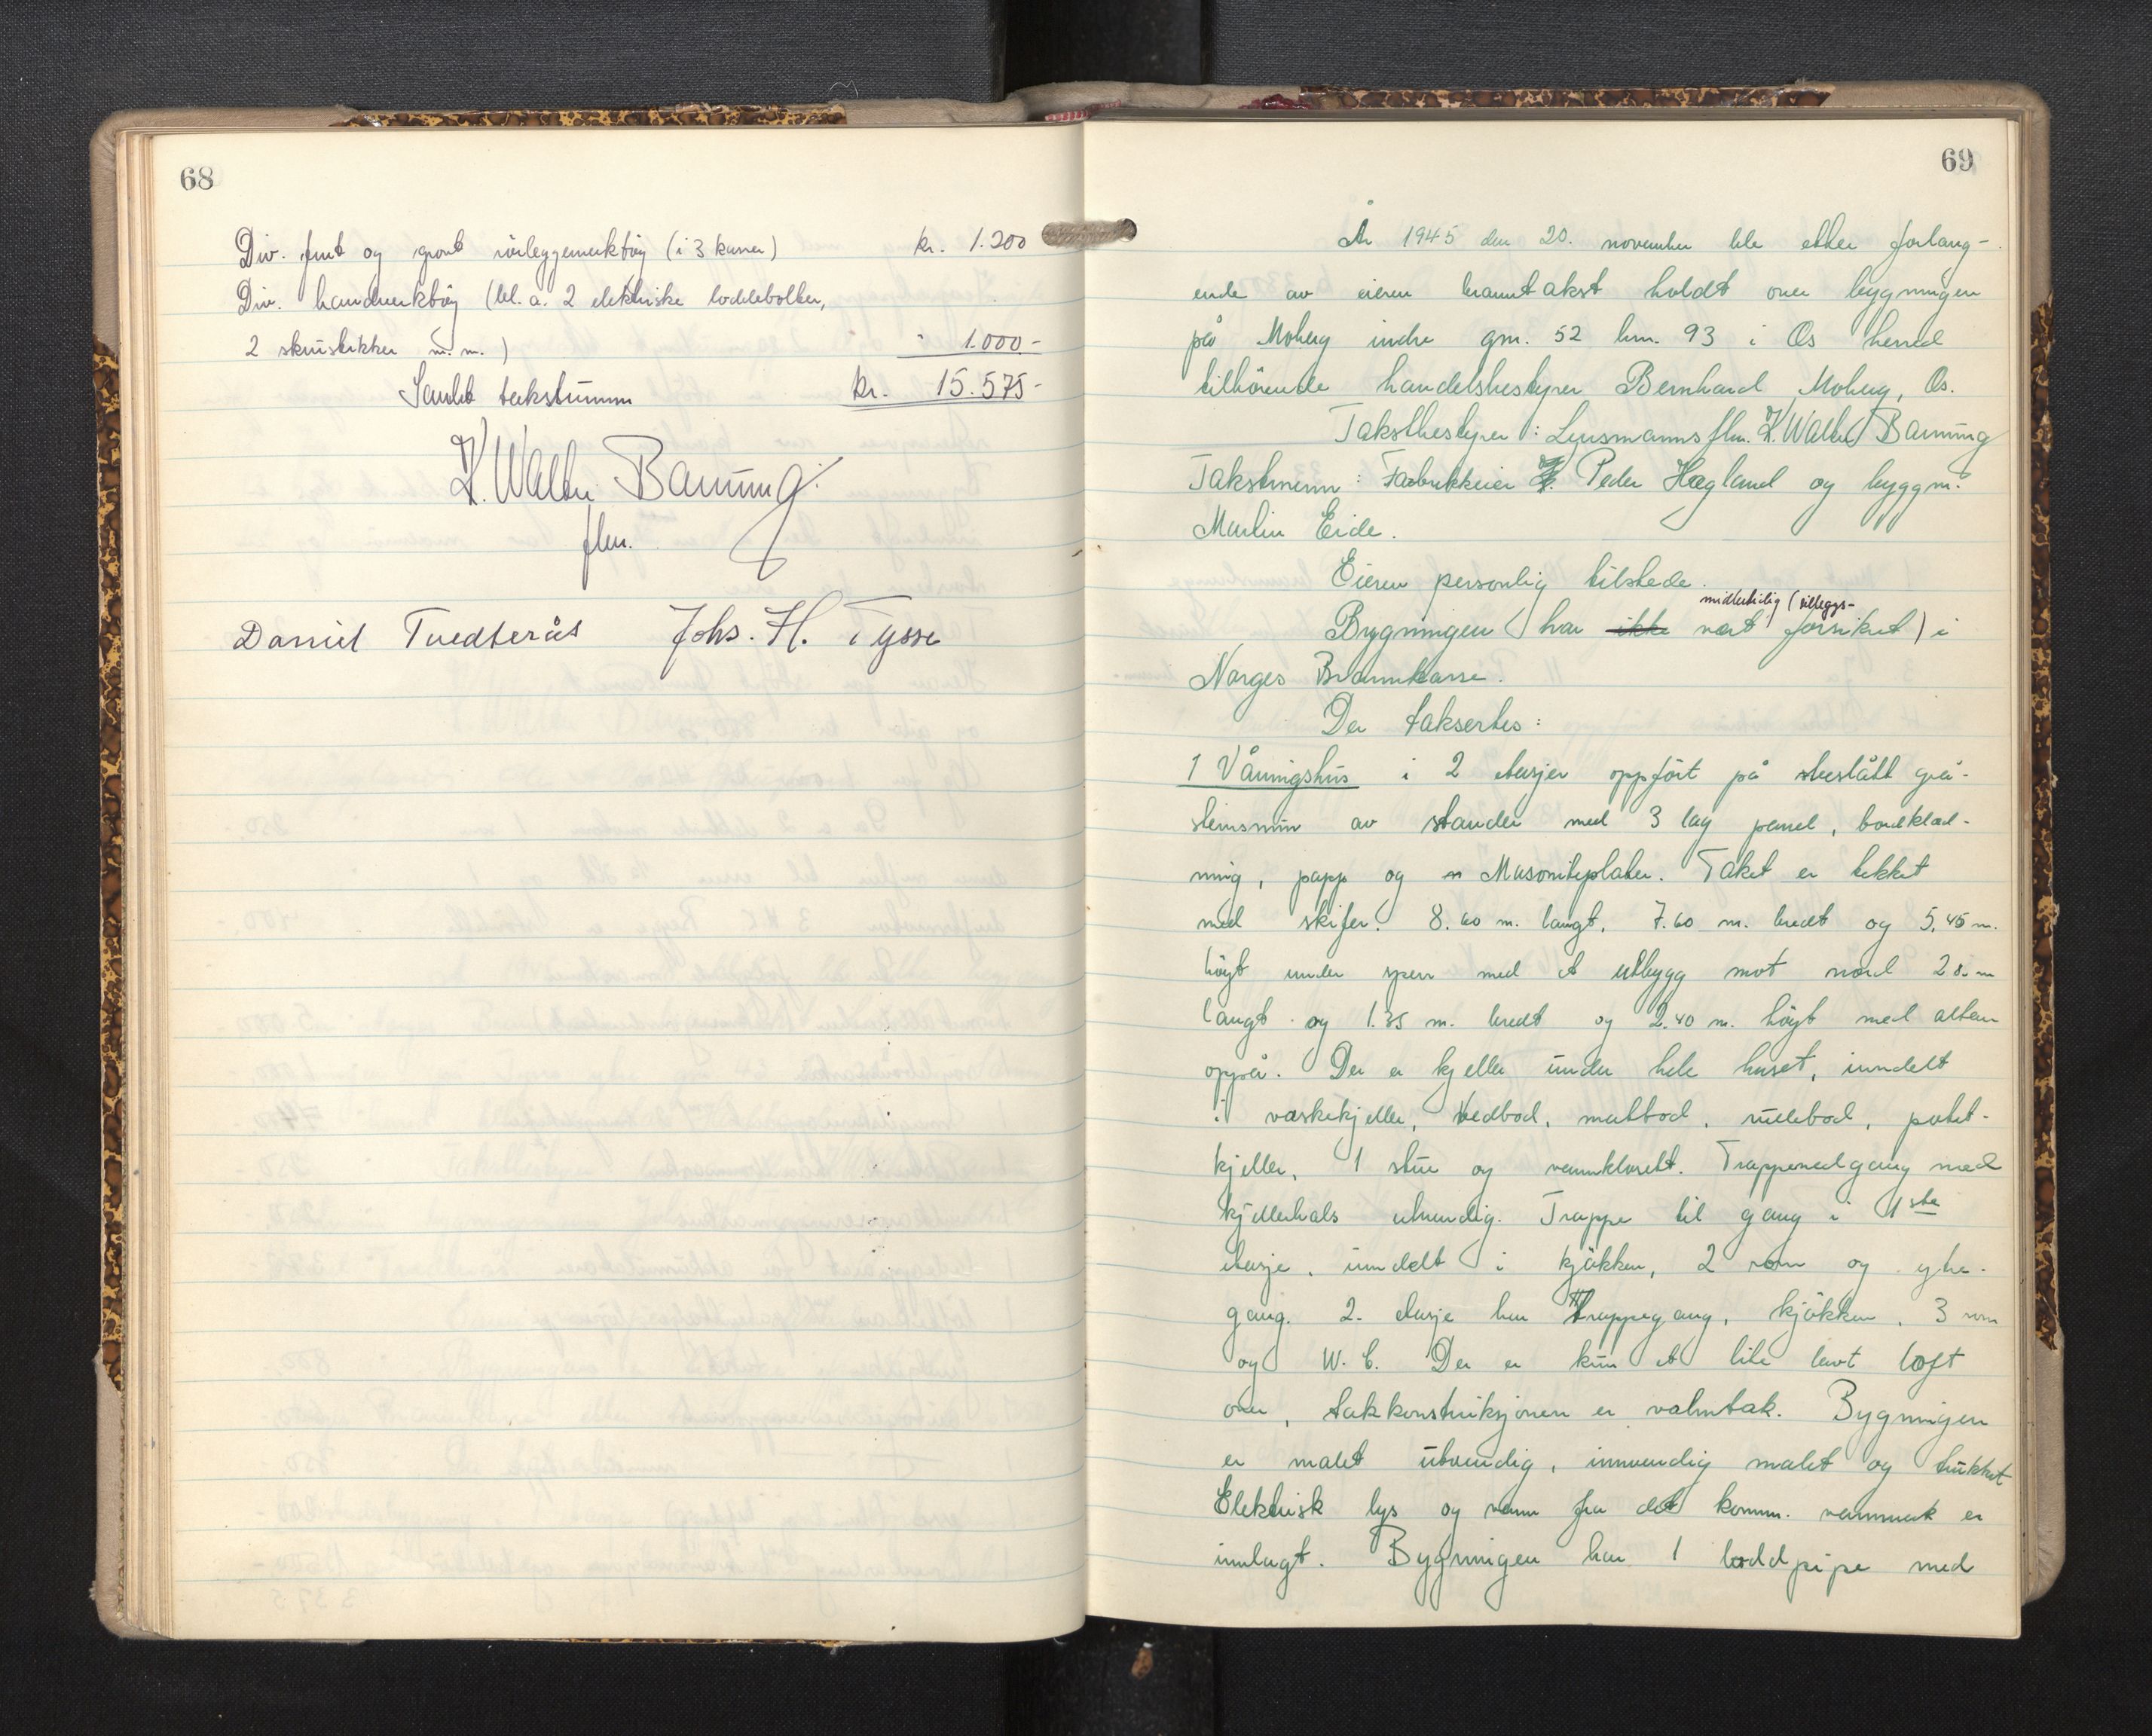 68
Div. fint og grovt rörleggerverktöy (i 3 kasser) kr. 1.200
Div. handverktöy (bl. a. 2 elektriske loddebolter,
2 skrustikker m. m.) " 1.000 -
Samlet takstsum kr. 15.575 -
K. Walter Banning
flm.
Daniel Tvedterås Johs. H. Tysse
69
År 1945 den 20. november ble etter forlang-
ende av eieren branntakst holdt over bygningen
på Moberg indre gnr. 52 bnr. 93 i Os herred
tilhörende handelsbestyrer Bernhard Moberg, Os.
Takstbestyrer: Lensmannsflm. K. Walter Banning
Takstmenn: Fabrikkeier Peder Hegland og byggm.
Martin Eide.
Eieren personlig tilstede.
midlertidig (tilleggs-
Bygningen har ikke vært forsikret) i
Norges Brannkasse.
Der taksertes:
1 Våningshus i 2 etasjer oppfört på sleslått grå-
steinsmur av stender med 3 lag panel, bordkled-
ning, papp og Masoniteplater. Taket er tekket
med skifer. 8.60 m. langt, 7.60 m. bredt og 5,45 m.
höyt under sperr med et utbygg mot nord 28. m
langt og 1.35 m. bredt og 2.40 m. höyt med altan
oppå. Der er kjeller under hele huset, inndelt
i vaskekjeller, vedbod, matbod, rullebod, potet-
kjeller, 1 stue og vannklosett. Trappenedgang med
kjellerhals utvendig. Trappe til gang i 1ste
etasje, inndelt i kjökken, 2 rom og ytre
gang. 2. etasje har trappegang, kjökken, 3 rom
og W. C. Der er kun et lite lavt loft
over, takkonstruksjonen er valmtak. Bygningen
er malt utvendig, innvendig malt og trukket
Elektrisk lys og vann fra det komm. vannverk er
innlagt. Bygningen har 1 loddpipe med